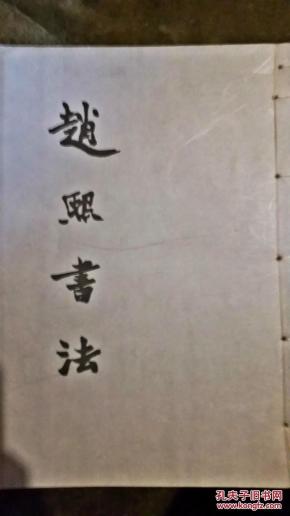 趙熙書法
孔夫子旧书网
www.kongfz.com